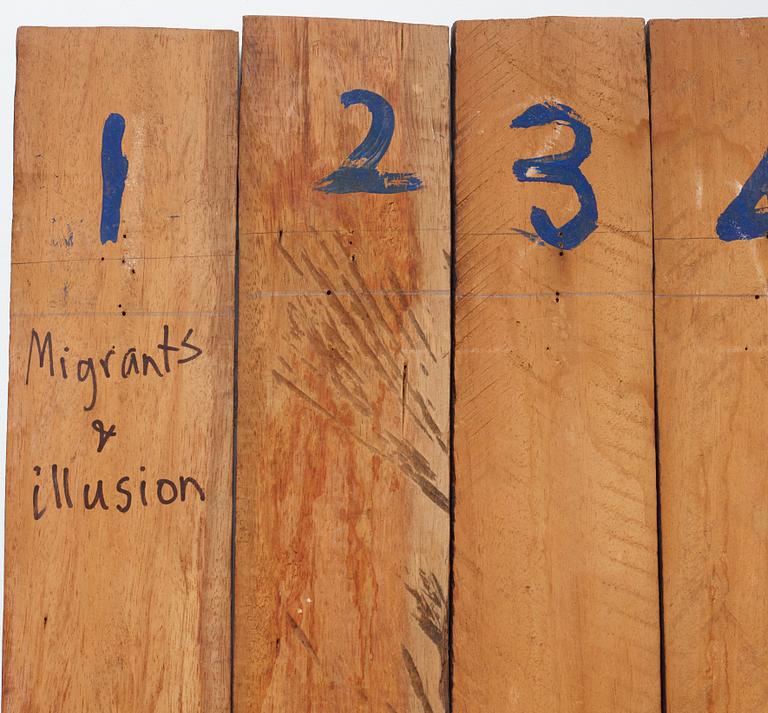 1 2 3
Migrants
&
illusion